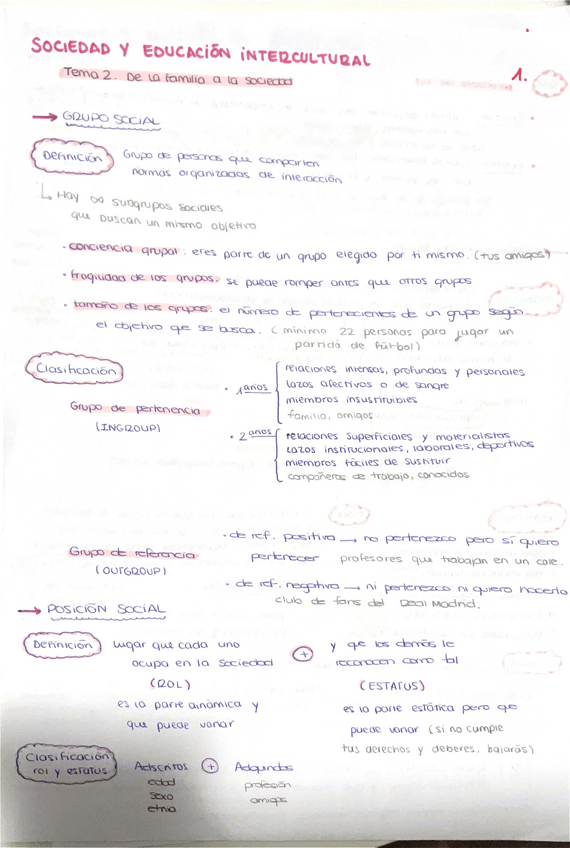 SOCIEDAD Y EDUCACIÓN INTERCULTURAL
Tema 2. De la familia a la sociedad
1.
→ GRUPO SOCIAL
Definición
Grupo de personas que comparten
normas organizadas de interacción
↳ Hay ∞ subgrupos sociales
que buscan un mismo objetivo
· conciencia grupal: eres parte de un grupo elegido por ti mismo. (tus amigos)
· fragilidad de los grupos: se puede romper antes que otros grupos
· tamaño de los grupos: el número de pertenecientes de un grupo según
el objetivo que se busca. (mínimo 22 personas para jugar un
partido de fútbol)
Clasificación
Grupo de pertenencia
(INGROUP)
· 1arios
relaciones intensas, profundas y personales
lazos afectivos o de sangre
miembros insustituibles
familia, amigos
· 2arios
relaciones superficiales y materialistas
lazos institucionales, laborales, deportivos
miembros fáciles de sustituir
compañeros de trabajo, conocidos
Grupo de referencia
(OUTGROUP)
· de ref. positiva → no pertenezco pero sí quiero
pertenecer profesores que trabajan en un cole.
· de ref. negativa → ni pertenezco ni quiero hacerlo
club de fans del Real Madrid.
→ POSICIÓN SOCIAL
Definición
lugar que cada uno
ocupa en la sociedad
(ROL)
es la parte dinámica y
que puede variar
+
y que los demás le
reconocen como tal
(ESTATUS)
es la parte estática pero que
puede variar (si no cumple
tus derechos y deberes, bajarás)
Clasificación
rol y estatus
Adscritos
edad
sexo
etnia
+
Adquiridos
profesión
amigos